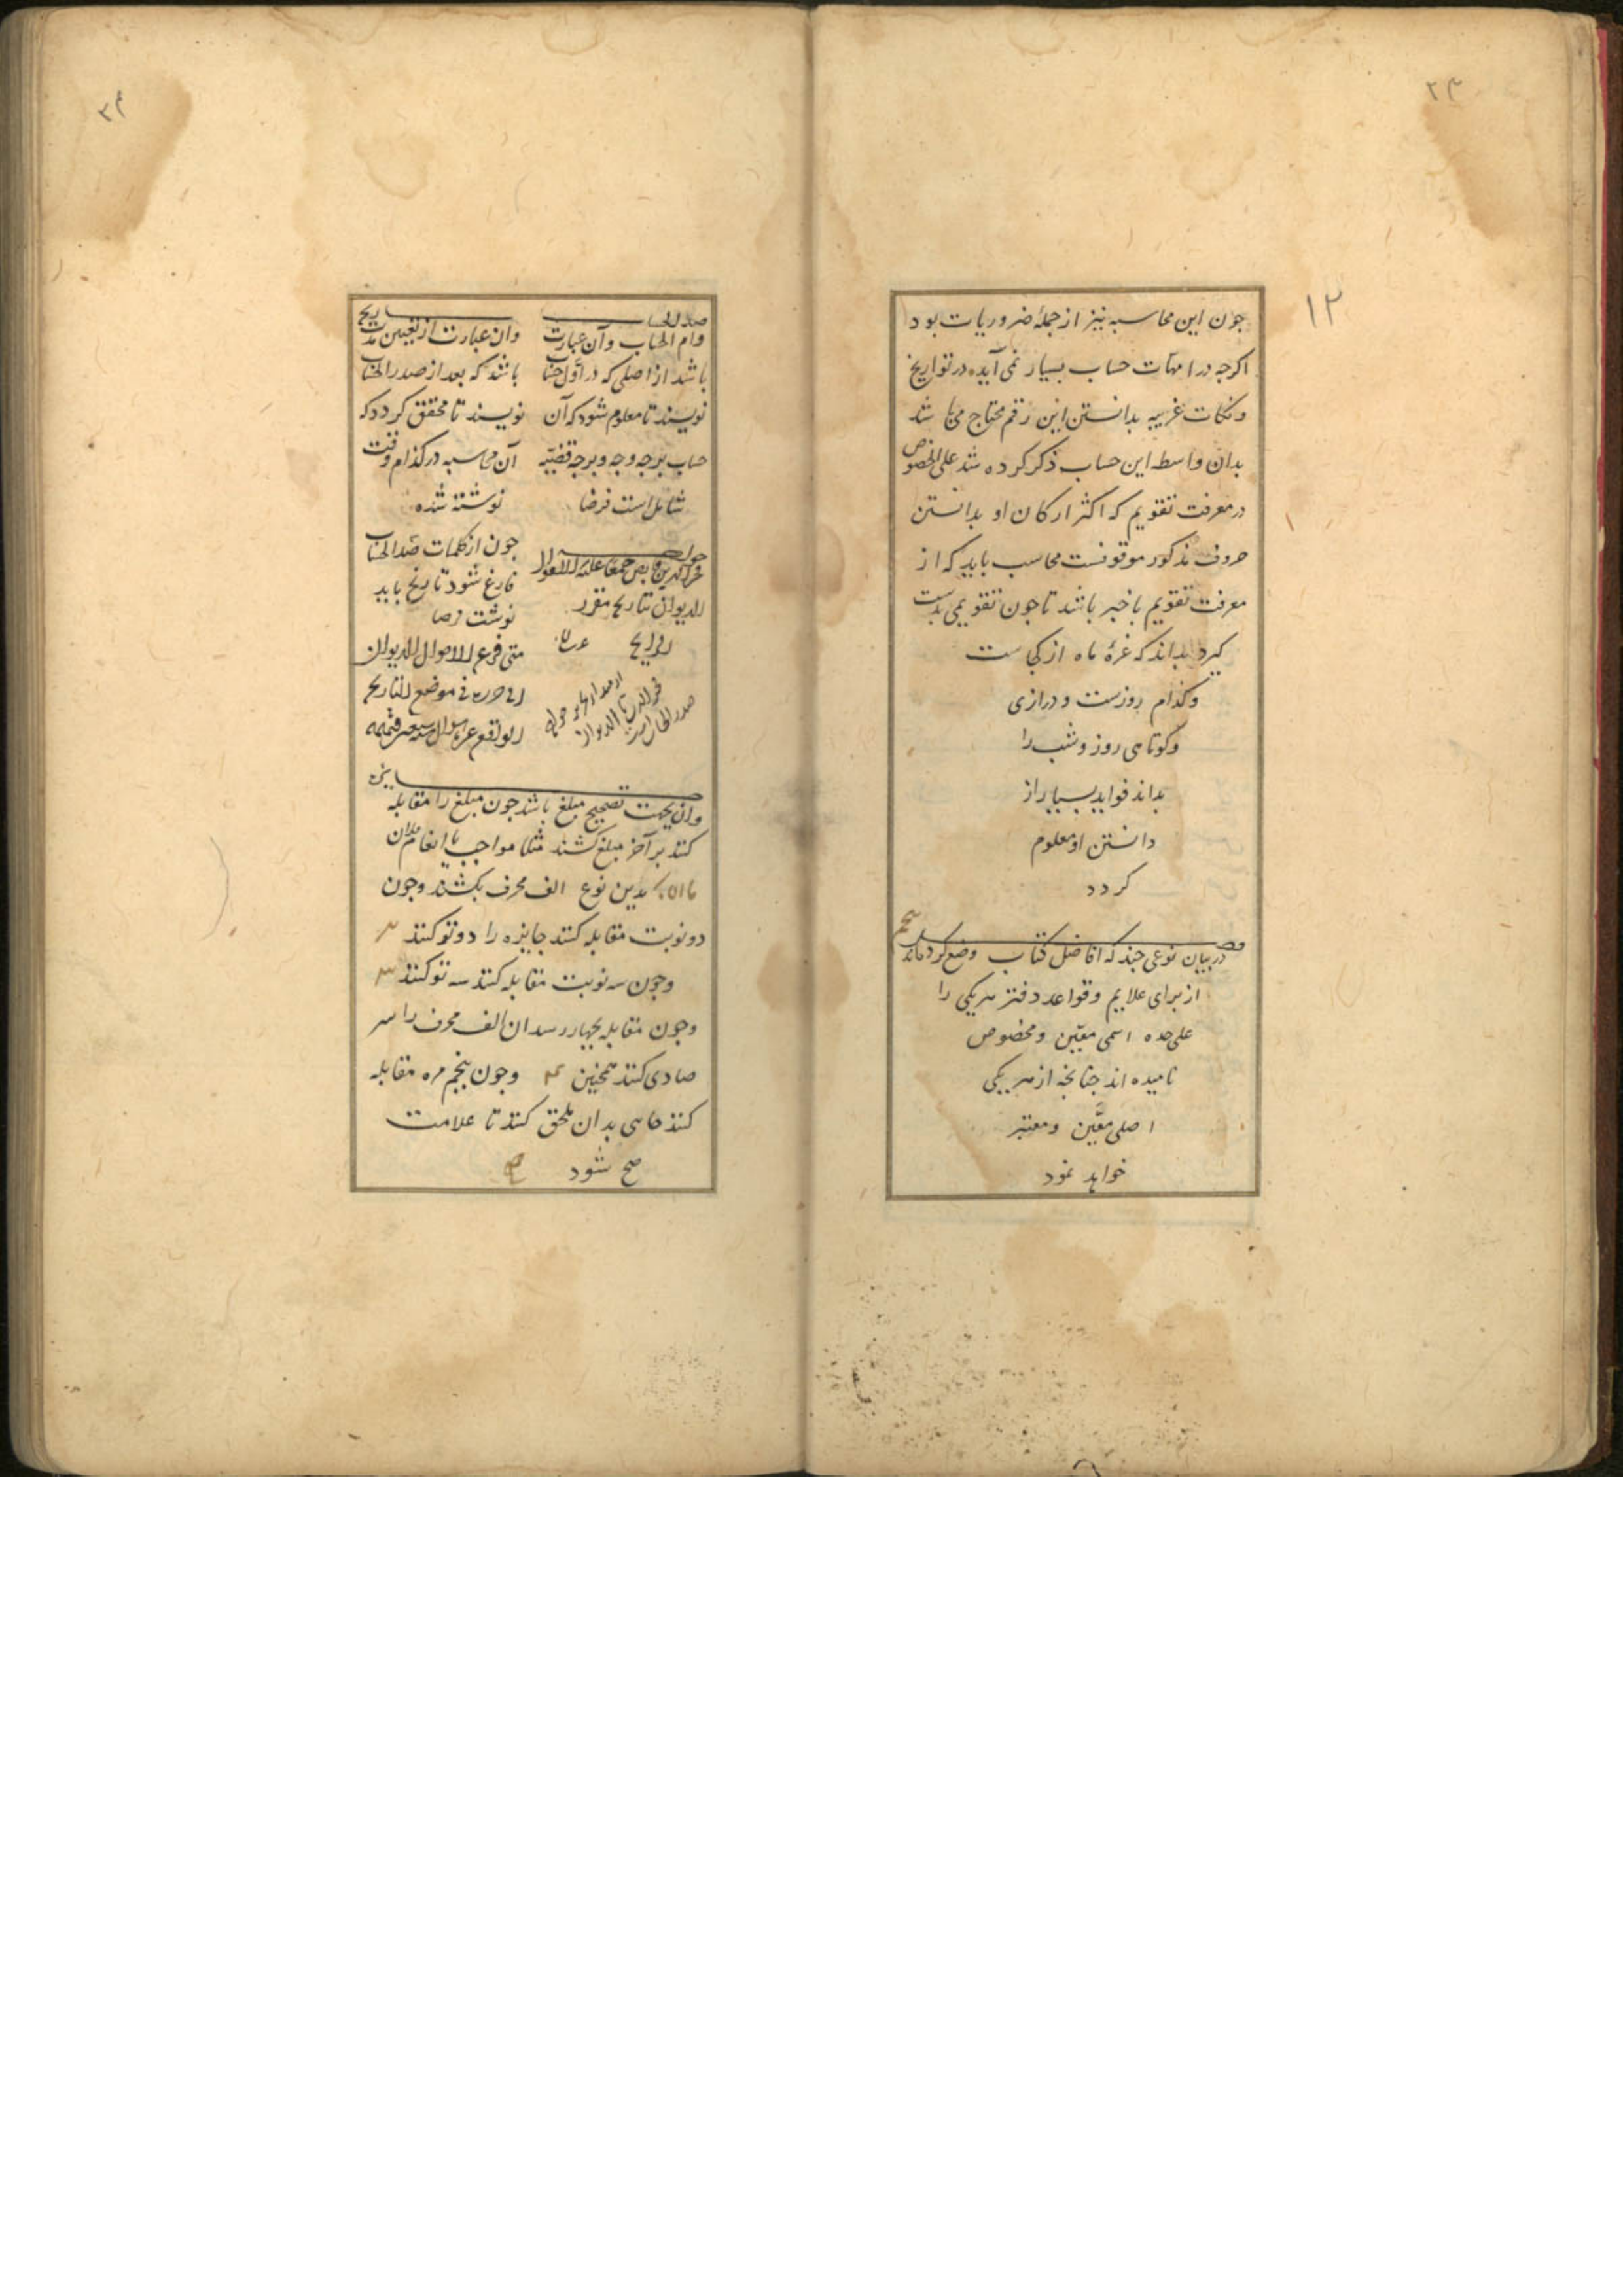 ۱۲
چون این محاسبه نیز از جملهٔ ضروریات بود
اکرچه در امهات حساب بسیار نمی آید در تواریخ
و نکات غریبه بدانستن این رقم محتاج می باشد
بدان واسطه این حساب ذکر کرده شد علی الخصوص
در معرفت تقویم که اکثر ارکان او بدانستن
حروف مذکور موقوفست محاسب باید که از
معرفت تقویم باخبر باشد تا چون تقویمی بدست
کیرد بداند که غرهٔ ماه از کجاست
و کدام روزست و درازی
و کوتاهی روز و شب را
بداند فواید بسیار از
دانستن او معلوم
کردد
فصل پنجم
در بیان نوعی چند که افاضل کتاب وضع کرده‌اند
از برای علایم و قواعد دفتر هریکی را
علی حده اسمی معین و مخصوص
نامیده اند چنانچه از هریکی
اصلی معین و معتبر
خواهد نمود
صدر الحساب
و ام الحساب و آن عبارت
باشد از اصلی که در اول حساب
نویسند تا معلوم شود که آن
حساب بر چه وجه و بر چه قضیه
شاملست فرضا
للدیوان بتاریخ مقرر
تاریخ
و ان عبارت از تعیین مدت
باشد که بعد از صدر الحساب
نویسند تا محقق کردد که
آن محاسبه در کدام وقت
نوشته شده
چون از کلمات صدر الحساب
فارغ شود تاریخ باید
نوشت فرضا
متی فرع الاموال الدیوان
فی موضع التاریخ
جایزه
و ان بجهت تصحیح مبلغ باشد چون مبلغ را مقابله
کنند بر آخر مبلغ کشند مثلا مواجب یا انعام فلان
بدین نوع الف محرف بکشند و چون
دو نوبت مقابله کنند جایزه را دو تو کنند
و چون سه نوبت مقابله کنند سه تو کنند
و چون مقابله بچهار رسد ان الف محرف را سر
صادی کنند همچنین و چون پنجم مره مقابله
کنند حاهی بدان ملحق کنند تا علامت
صح شود